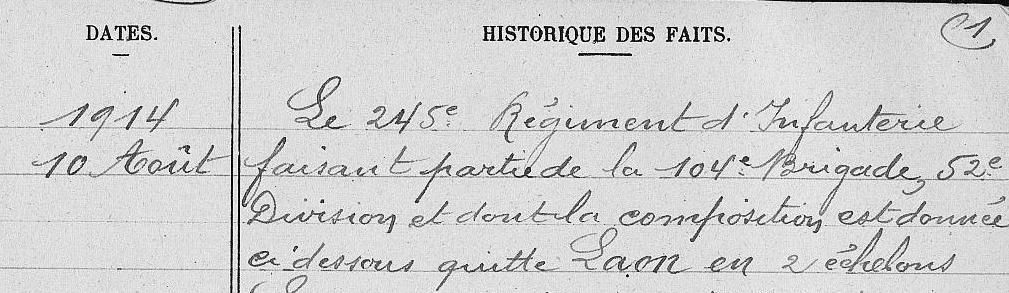 DATES.
HISTORIQUE DES FAITS.
1
1914
Le 245e Régiment d'Infanterie
10 Août
faisant partie de la 104e Brigade, 52e
Division, et dont la composition est donnée
ci dessous quitte Laon en 2 échelons